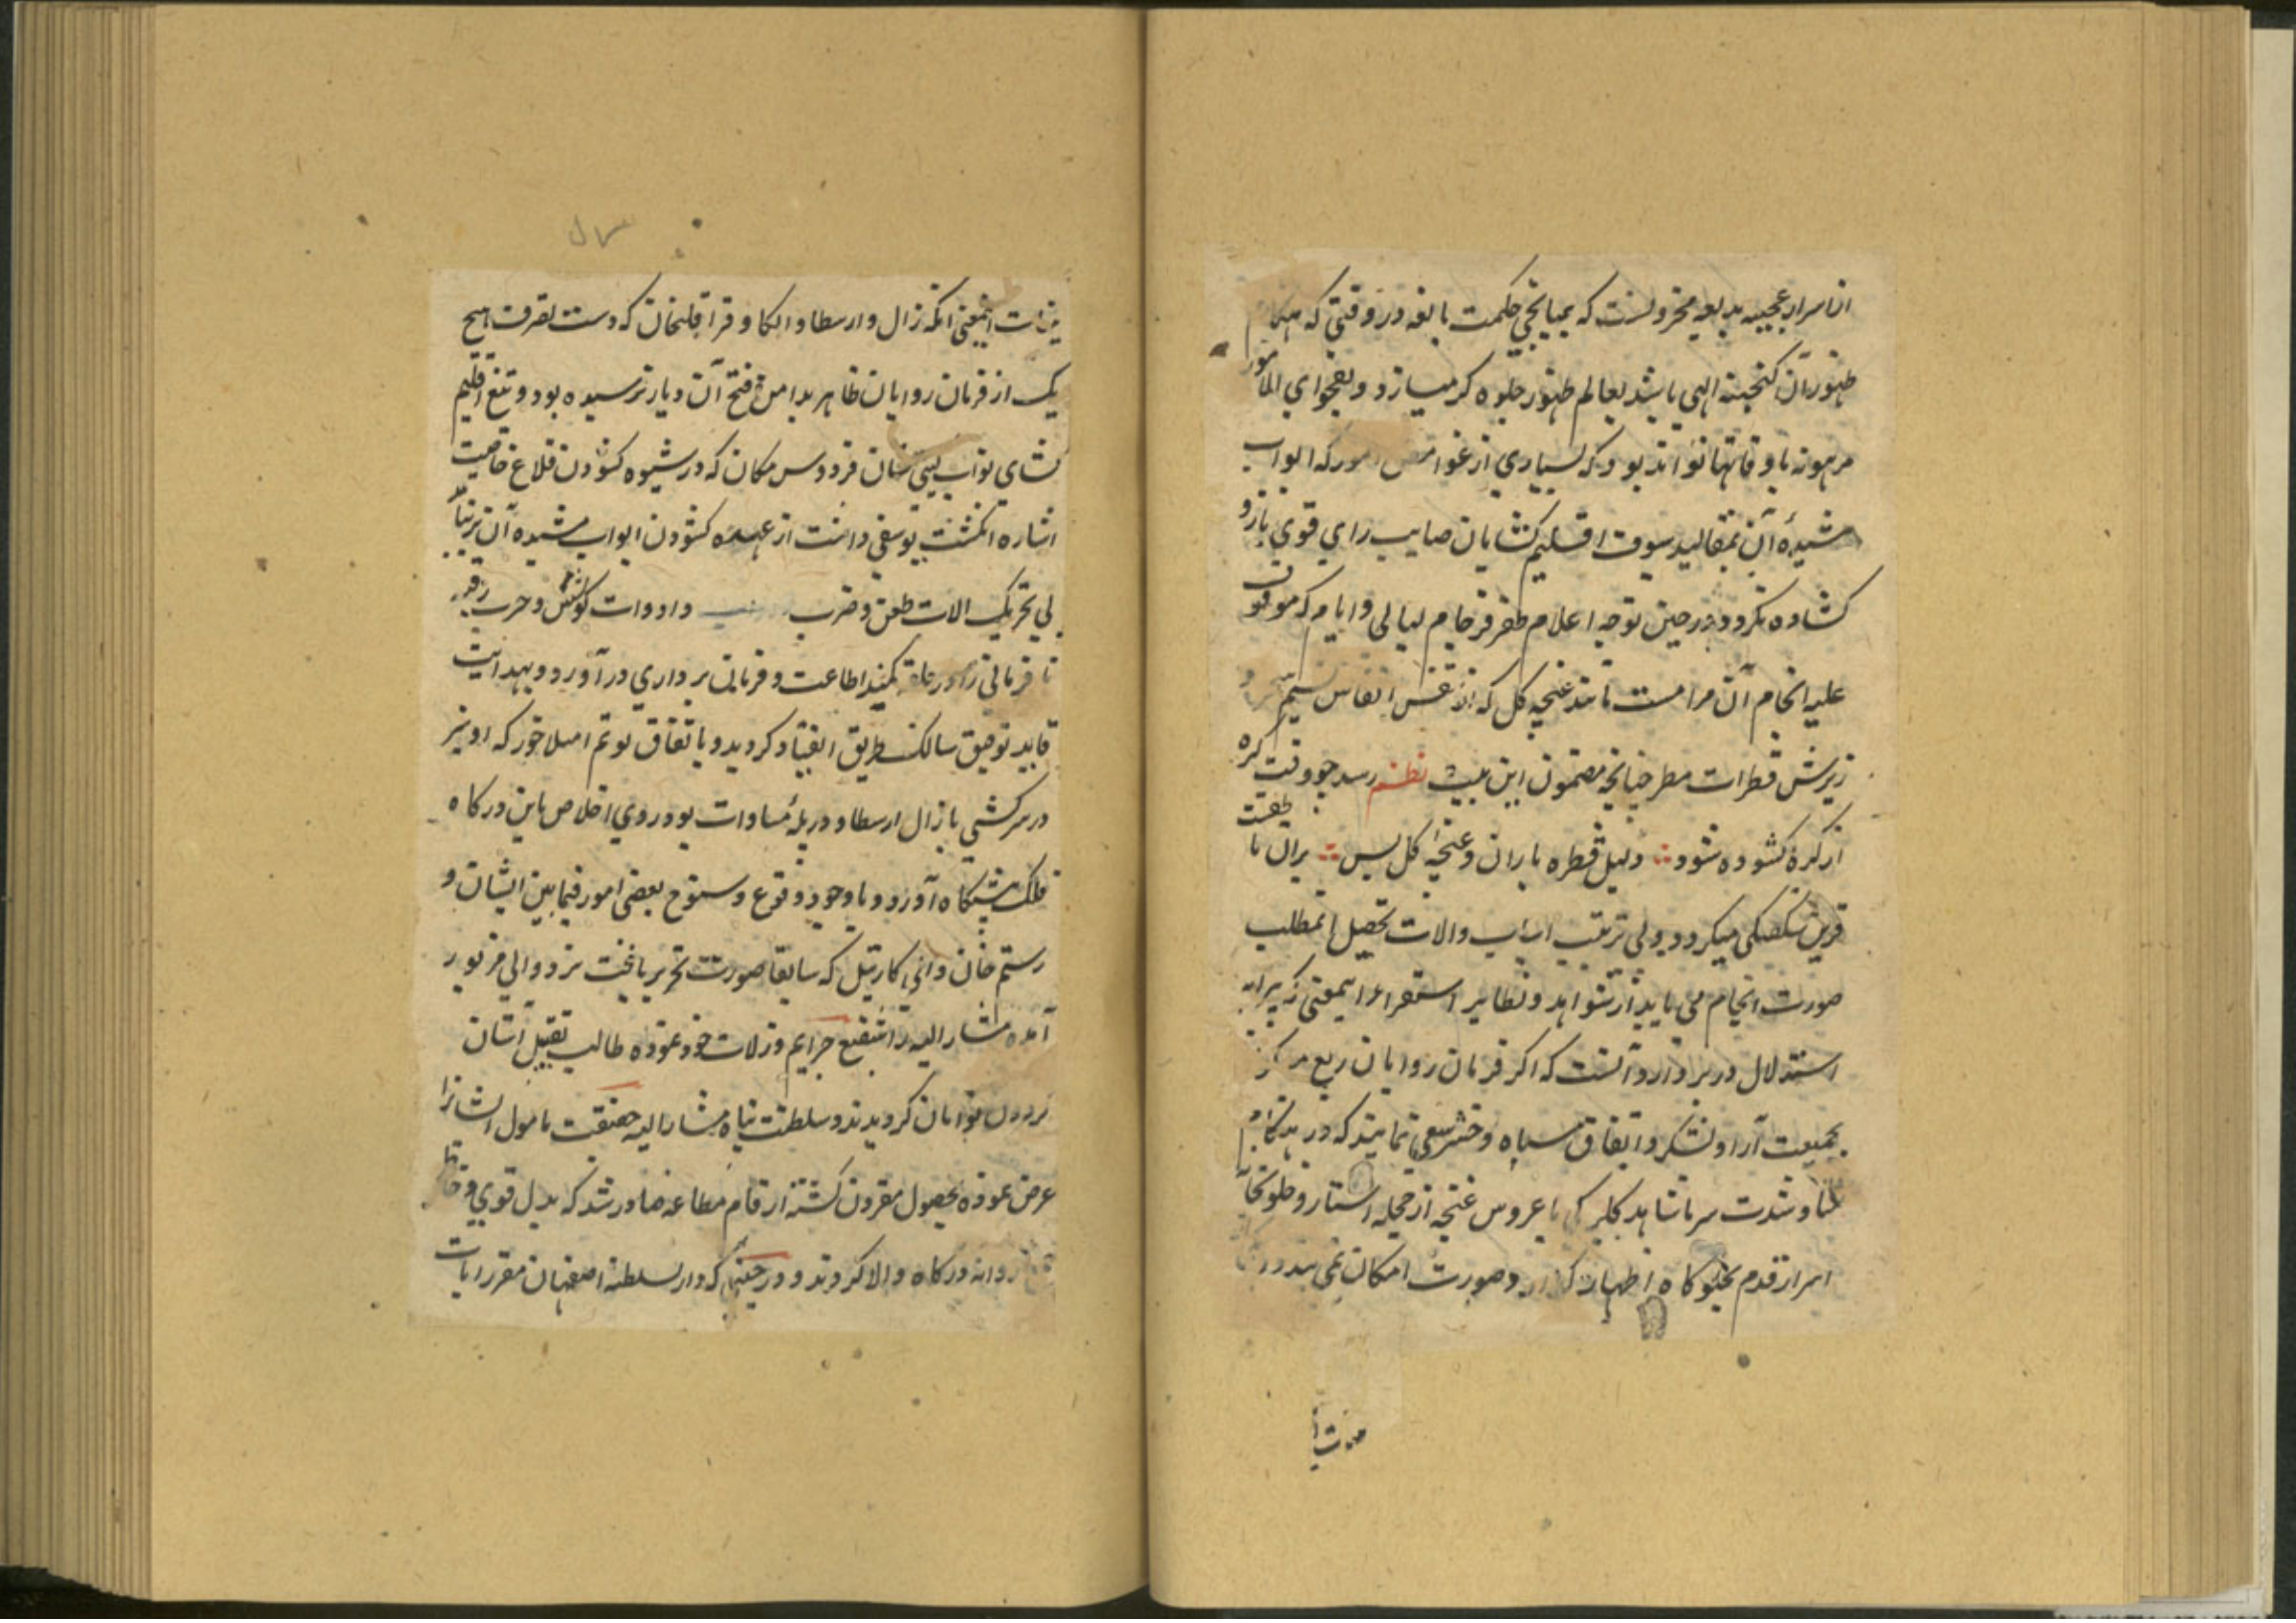 از اسرار عجیبه بدیعه مخزونست که بمیانجی حکمت بالغه در وقتی که هنکام
ظهور آن کنجینه الهی باشد بعالم ظهور جلوه کر میسازد و بفحوای الامور
مرهونة باوقاتها تواند بود که بسیاری از غوامض امور که ابواب
مشیده آن بمقالید سیوف اقلیم کشایان صایب رای قوی بازو
کشاده نکردد در حین توجه اعلام ظفر فرجام لیالی و ایام که موقوف
علیه انجام آن مرامست مانند غنچه کل که از نفس انفاس نسیم و
ریزش قطرات مطر چنانچه مضمون این بیت نظم رسد چو وقت کره
از کره کشوده شود دلیل قطره باران و غنچه کل بس بران با طبقت
قرین شکفتکی میکردد و بی ترتیب اسباب والات تحصیل انمطلب
صورت انجام می یابد از شواهد و نظایر استقراء اینمعنی که پیرایه
استدلال در بر دارد آنست که اکر فرمان روایان ربع مرکز
بجمعیت آرا و لشکر و اتفاق سپاه و حشر سعی نمایند که در هنکام
شتا و شدت سرما شاهد کلبرک یا عروس غنچه از حجله استار و خلوتخانه
اسرار قدم بجلوکاه اظهار کذارد صورت امکان نمی بندد
اینمعنی انکه زال و ارسطاو والکا و قراقلخان که دست تصرف هیچ
یک از فرمان روایان ظاهر بدامن فتح آن دیار نرسیده بود و تیغ اقلیم
کشای نواب کیتی ستان فردوس مکان که در شیوه کشودن قلاع خاصیت
اشاره انکشت یوسفی داشت از عهده کشودن ابواب مشیده آن برنیامد
بی تحریک الات طعن و ضرب وادوات کوشش و حرب رقبه
نافرمانی را در حلقه کمند اطاعت و فرمانبرداری در آورد و بهدایت
قاید توفیق سالک طریق انقیاد کردید و باتفاق لوتم امیلاخور که او نیز
در سرکشی با زال ارسطاو در پله مساوات بود روی اخلاص باین درکاه
فلک پیشکاه آورد و با وجود وقوع و سنوح بعضی امور فیما بین ایشان و
رستم خان والی کارتیل که سابقا صورت تحریر یافت نزد والی مزبور
آمده مشار الیه را شفیع جرایم و زلات خود نموده طالب تقبیل آستان
کردیدند و سلطنت پناه مشار الیه حقیقت مامول ایشانرا
عرض نموده بحصول مقرون کشته ارقام مطاعه صادر شد که بدل قوی و خاطر
روانه درکاه والا کردند و در حینی که دار السلطنة اصفهان مقر رایات